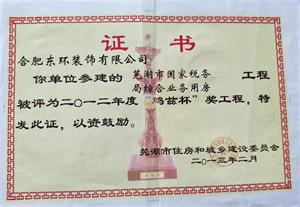 证书
合肥东环装饰有限公司
你单位参建的 芜湖市国家税务局综合业务用房 工程
被评为二〇一二年度“鸠兹杯”奖工程，特
发此证，以资鼓励。
芜湖市住房和城乡建设委员会
二〇一三年二月